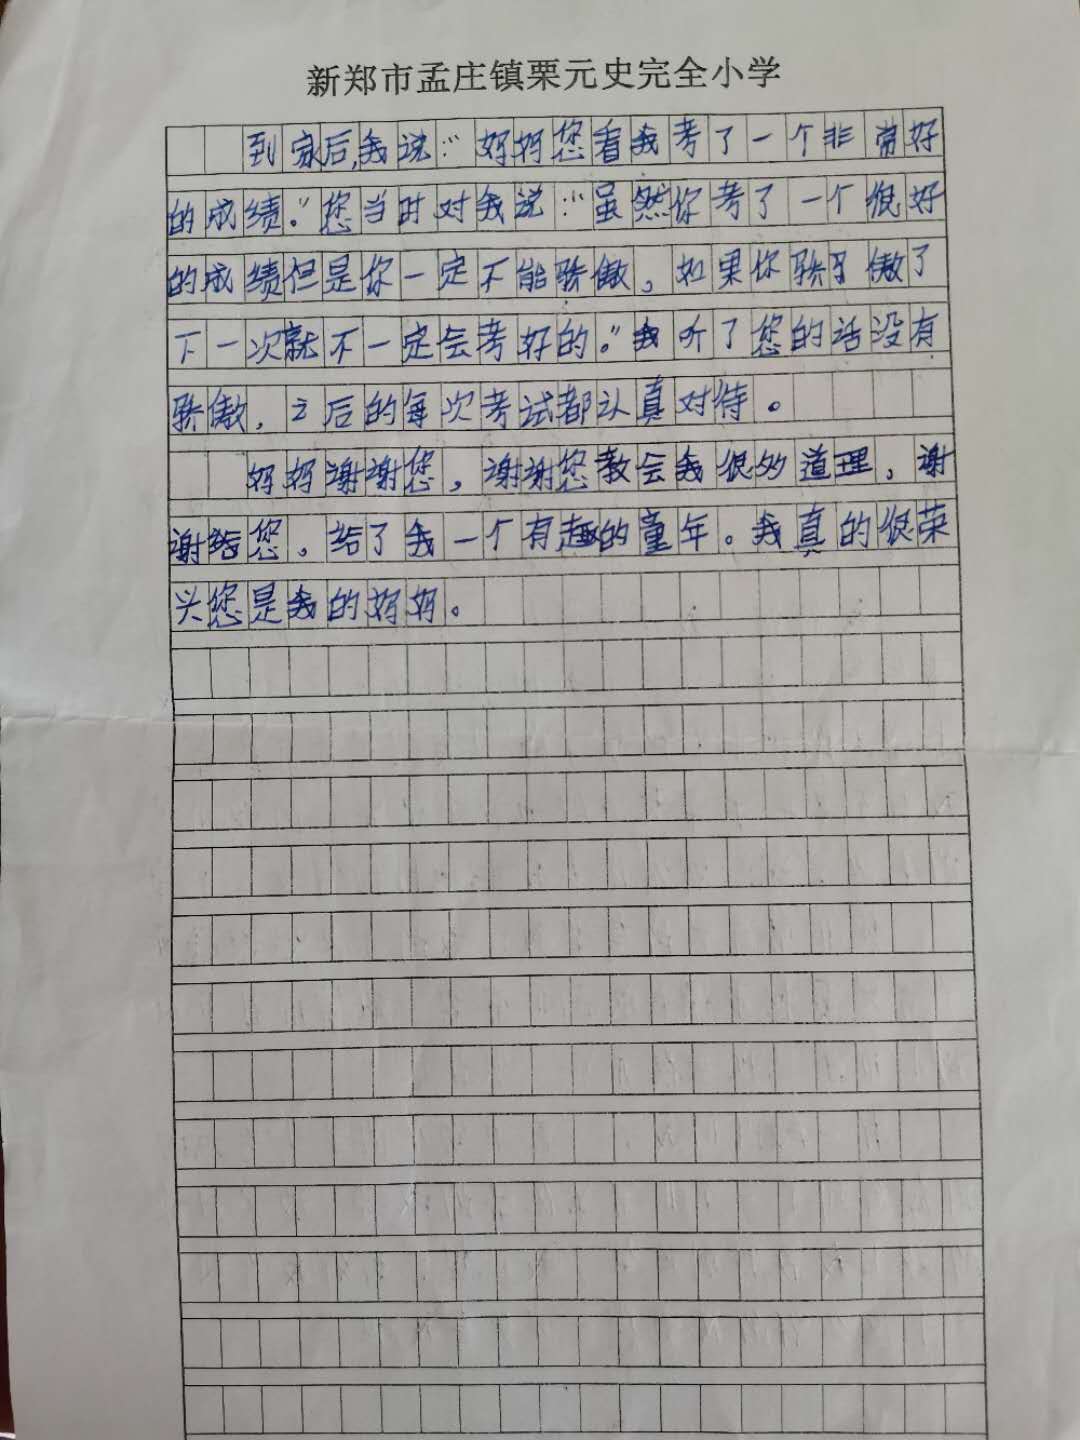 新郑市孟庄镇栗元史完全小学
到家后,我说:“妈妈您看我考了一个非常好
的成绩。”您当时对我说:“虽然你考了一个很好
的成绩但是你一定不能骄傲,如果你骄傲了
下一次就不一定会考好的。”我听了您的话没有
骄傲,之后的每次考试都认真对待。
妈妈谢谢您,谢谢您教会我很多道理,谢
谢您,给了我一个有趣的童年。我真的很荣
兴您是我的妈妈。